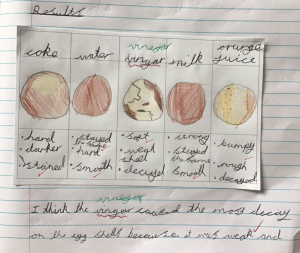 Results
coke
water
vinegar
vingar
milk
orange juice
• hard
• darker
• stained
• stayed the same
• hard
• smooth
• soft
• weak shell
• decayed
• strong
• stayed the same
• smooth
• bumpy
• rough
• decayed
vinegar
I think the vingar caused the most decay
on the egg shells because it was weak and